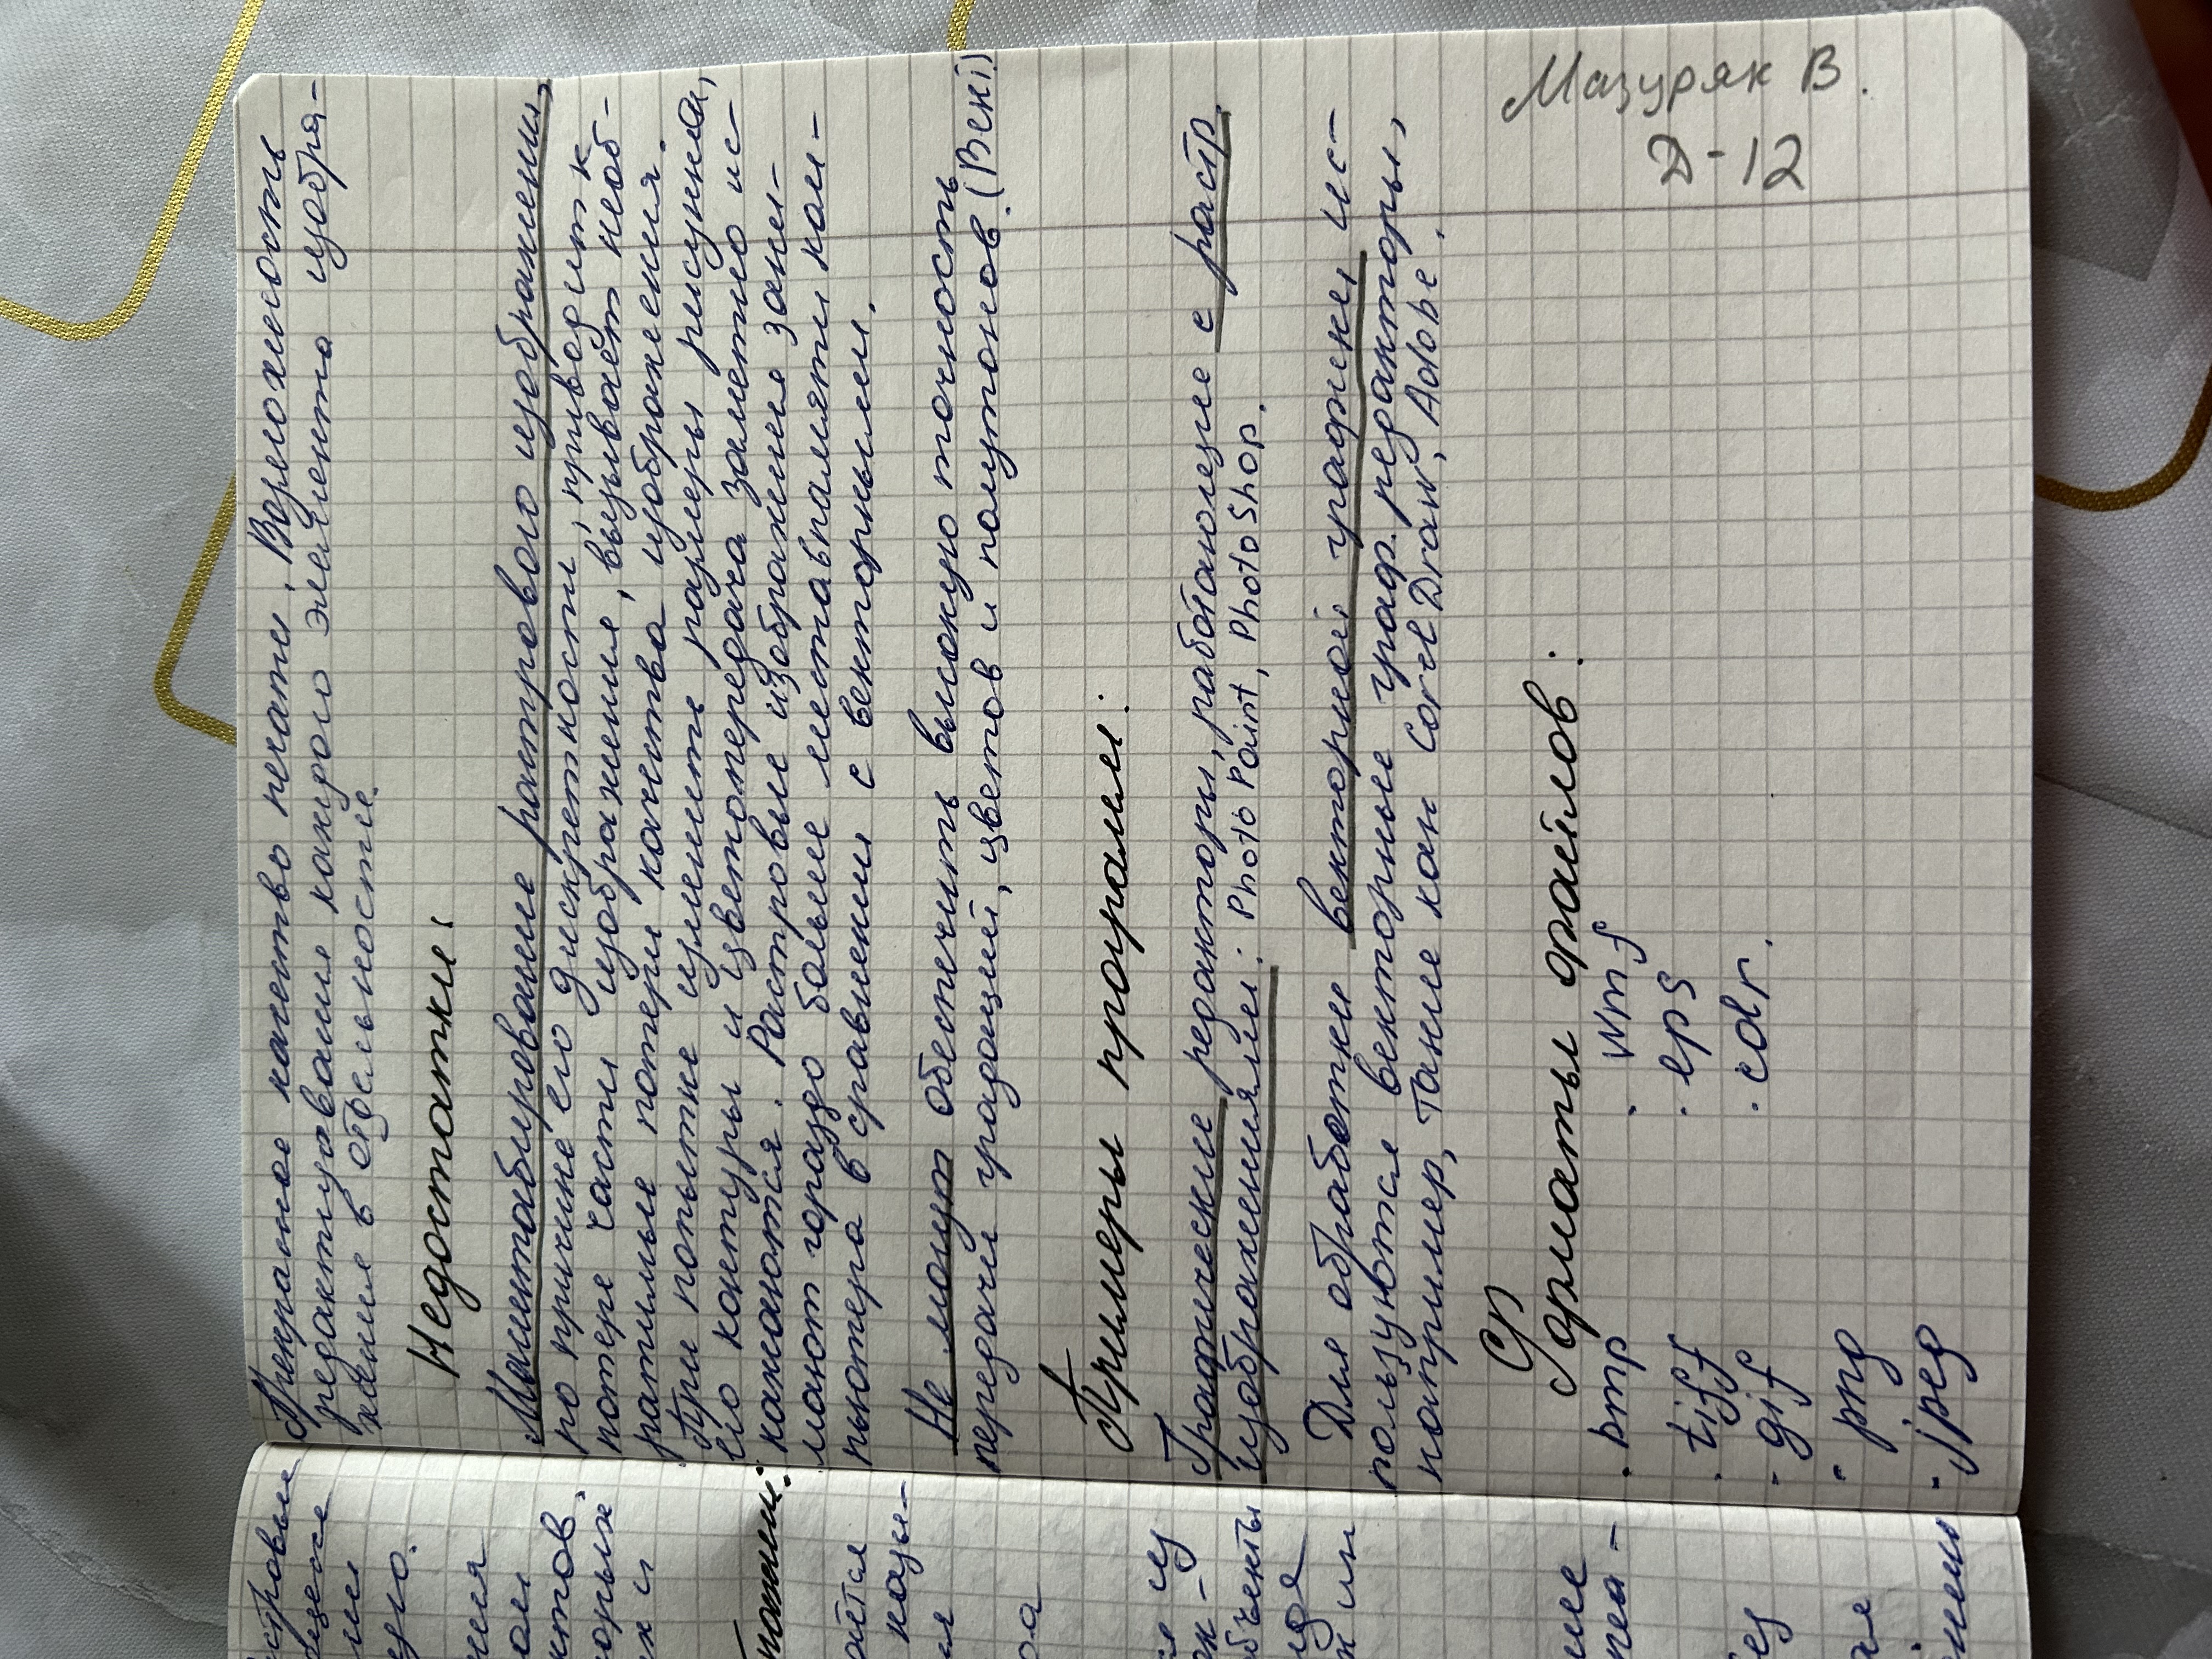 Прекрасное качество печати. Возможность
редактирования каждого элемента изобра-
жения в отдельности.
Недостатки:
Масштабирование растрового изображения,
по причине его дискретности, приводит к
потере части изображения, вызывает необ-
ратимые потери качества изображения.
При попытке изменить размеры рисунка,
его контуры и цветопередача заметно ис-
кажаются. Растровые изображения зани-
мают гораздо больше места в памяти ком-
пьютера в сравнении с векторными.
Не могут обеспечить высокую точность
передачи градаций, цветов и полутонов. (Векі)
Примеры програмы:
Графические редакторы, работающие с растр
изображениями: Photo Paint, PhotoShop.
Для обработки векторной графики, ис-
пользуются векторные граф. редакторы,
например, такие как Corel Draw, Adobe.
Форматы файлов:
. bmp . wmf
. tiff . eps
- gif . cdr.
- png
- jpeg
Мазуряк В.
Д-12